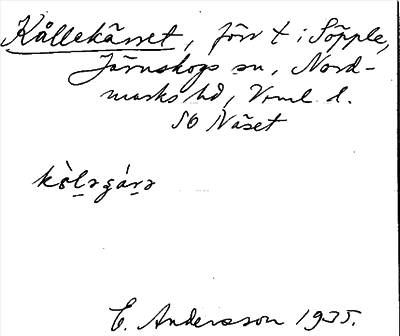 Kållekärret, förr t. i Söpple,
Järnskogs sn, Nord-
marks hd, Vrml. l.
SO Näset
kòləgárə
E. Andersson 1935.